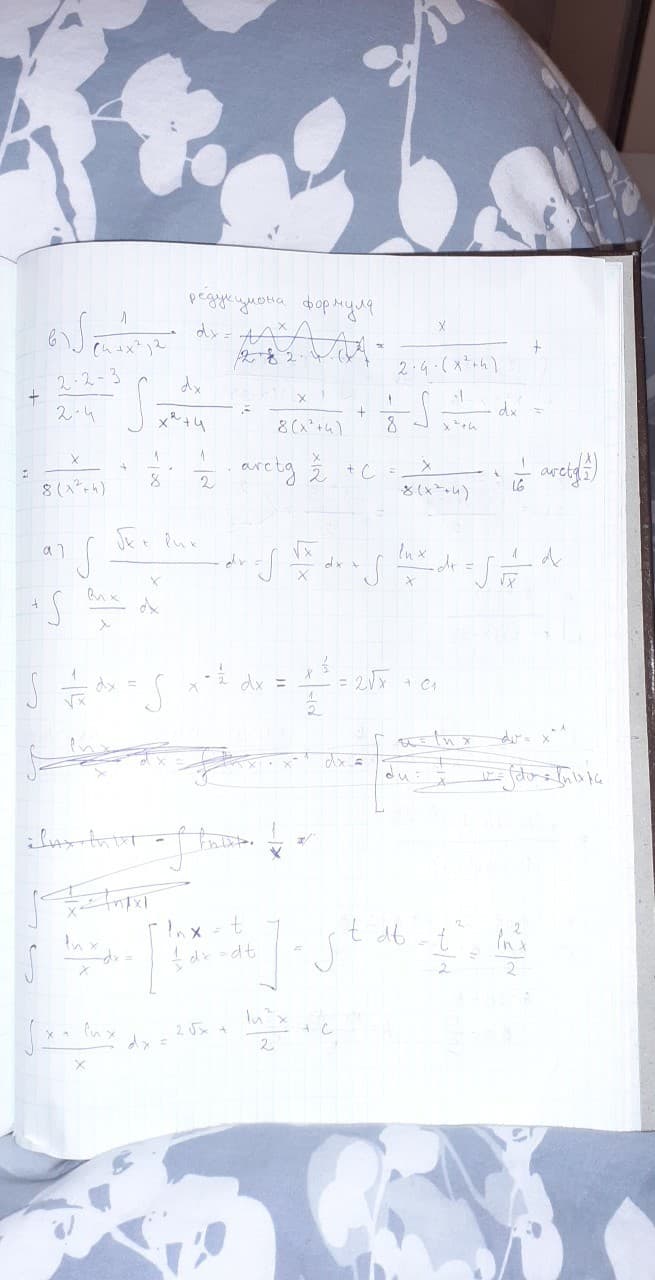 редукциона формула
в) ∫ 1/(4+x²)² dx = = x/(2·4·(x²+4)) +
+ (2·2-3)/(2·4) ∫ dx/(x²+4) = x/(8(x²+4)) + 1/8 ∫ 1/(x²+4) dx =
= x/(8(x²+4)) + 1/8 · 1/2 · arctg x/2 + C = x/(8(x²+4)) + 1/16 arctg(x/2)
а) ∫ (√x + ln x)/x dx = ∫ √x/x dx + ∫ ln x/x dx = ∫ 1/√x d
+ ∫ ln x/x dx
∫ 1/√x dx = ∫ x^(-1/2) dx = x^(1/2)/(1/2) = 2√x + C₁
∫ ln x/x dx = ∫ ln x · x⁻¹ dx = [u = ln x dv = x⁻¹
du = 1/x v = ∫dv = ln|x|+C
= ln x · ln|x| - ∫ ln|x| · 1/x =
∫ 1/x = ln|x|
∫ ln x/x dx = [ln x = t
1/x dx = dt] = ∫ t dt = t²/2 = ln²x/2
∫ (x + ln x)/x dx = 2√x + ln²x/2 + C